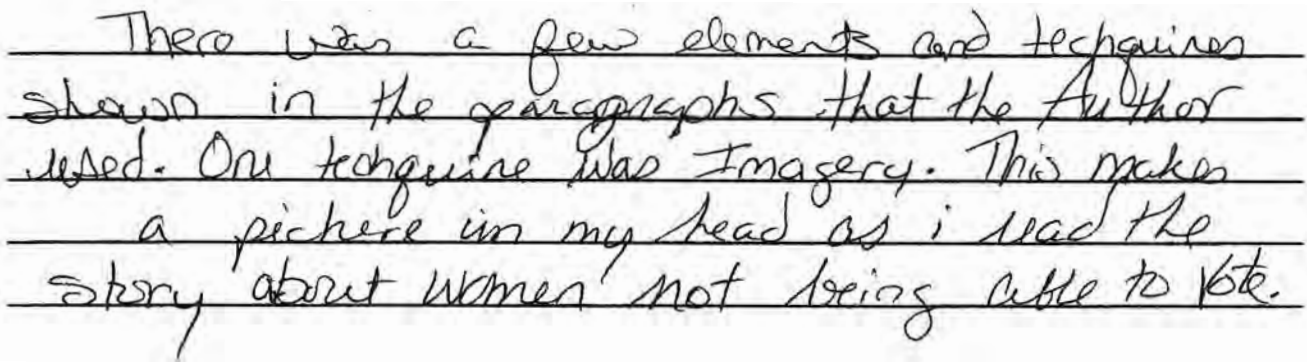 There was a few elements and techquines
shown in the paragraphs that the Author
used. One techquine was Imagery. This makes
a pichere in my head as i read the
story about women not being able to Vote.